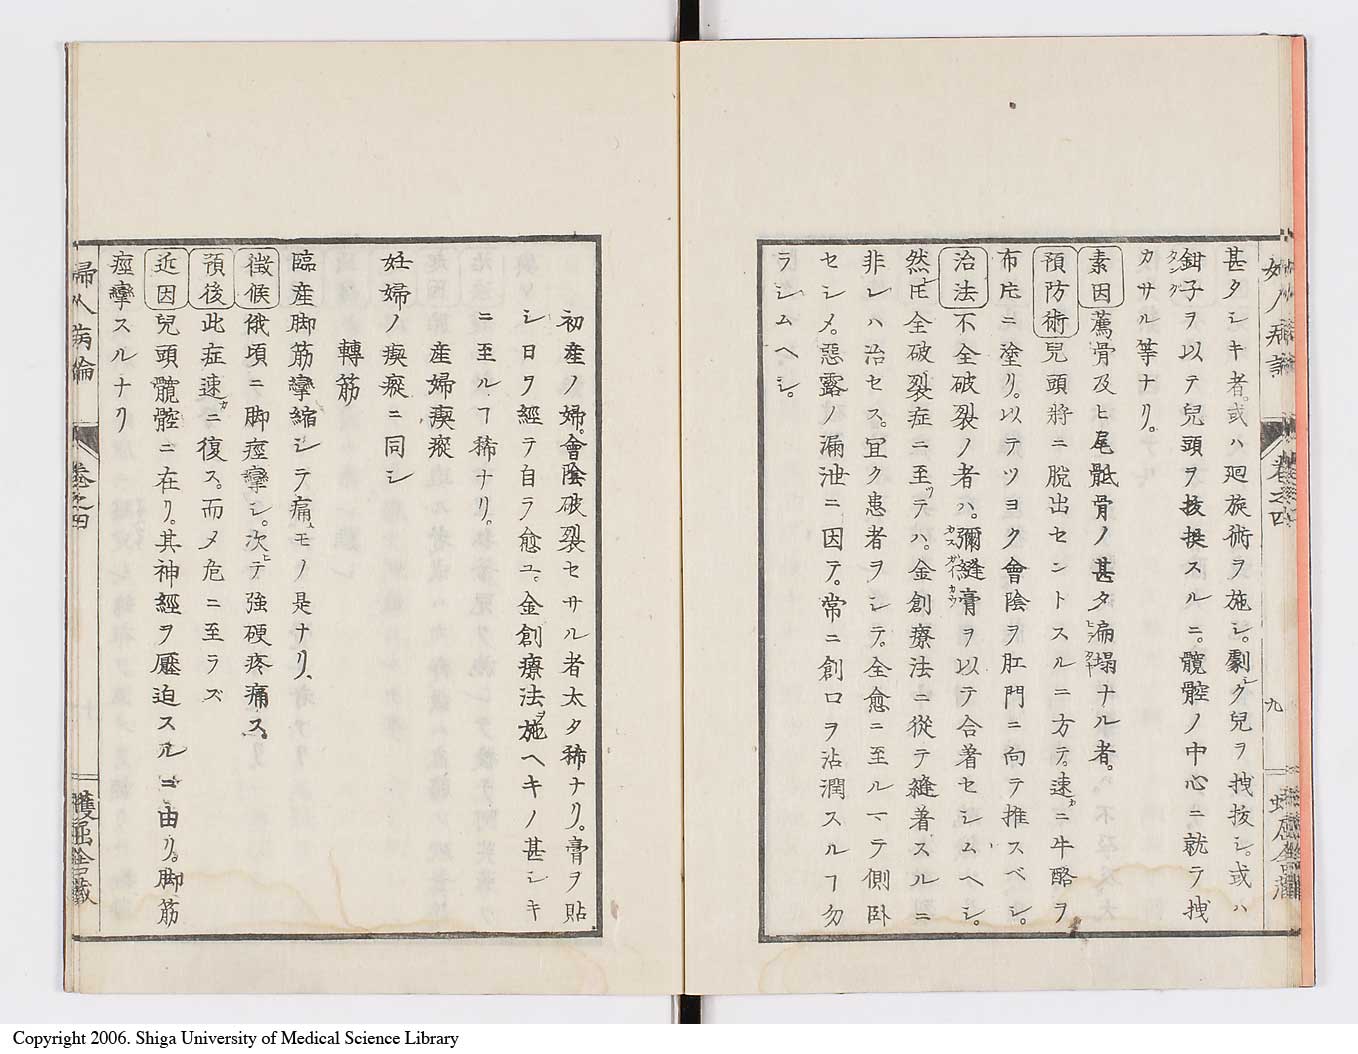 甚タシキ者。或ハ廻旋術ヲ施シ。劇シク兒ヲ拽抜シ。或ハ
鉗子ヲ以テ兒頭ヲ抜挺スルニ。髖腔ノ中心ニ就ラ拽
カサル等ナリ。
素因 薦骨及ヒ尾骶骨ノ甚タ扁塌ナル者。
預防術 兒頭將ニ脱出セントスルニ方テ。速カニ牛酪ヲ
布片ニ塗リ。以テツヨク會陰ヲ肛門ニ向テ推スベシ。
治法 不全破裂ノ者ハ。彌縫膏ヲ以テ合着セシムヘシ。
然𪜈全破裂症ニ至ツテハ。金創療法ニ從テ縫着スルニ
非レハ治セス。冝ク患者ヲシテ。全愈ニ至ルマテ側卧
セシメ。惡露ノ漏泄ニ因テ。常ニ創口ヲ沾潤スルヿ勿
ラシムヘシ。
婦人病論 卷之四 九
初産ノ婦。會陰破裂セサル者太タ稀ナリ。膏ヲ貼
シ日ヲ經テ自ラ愈ユ。金創療法ヲ施ヘキノ甚シキ
ニ至ルヿ稀ナリ。
産婦瘈瘲
妊婦ノ瘈瘲ニ同シ
轉筋
臨産脚筋攣縮シテ痛ムモノ是ナリ、
徴候 俄頃ニ脚痙攣シ。次ヒテ強硬疼痛ス。
預後 此症速カニ復ス。而メ危ニ至ラズ
近因 兒頭髖腔ニ在リ。其神經ヲ壓迫スルニ由リ。脚筋
痙攣スルナリ
婦人病論 卷之四